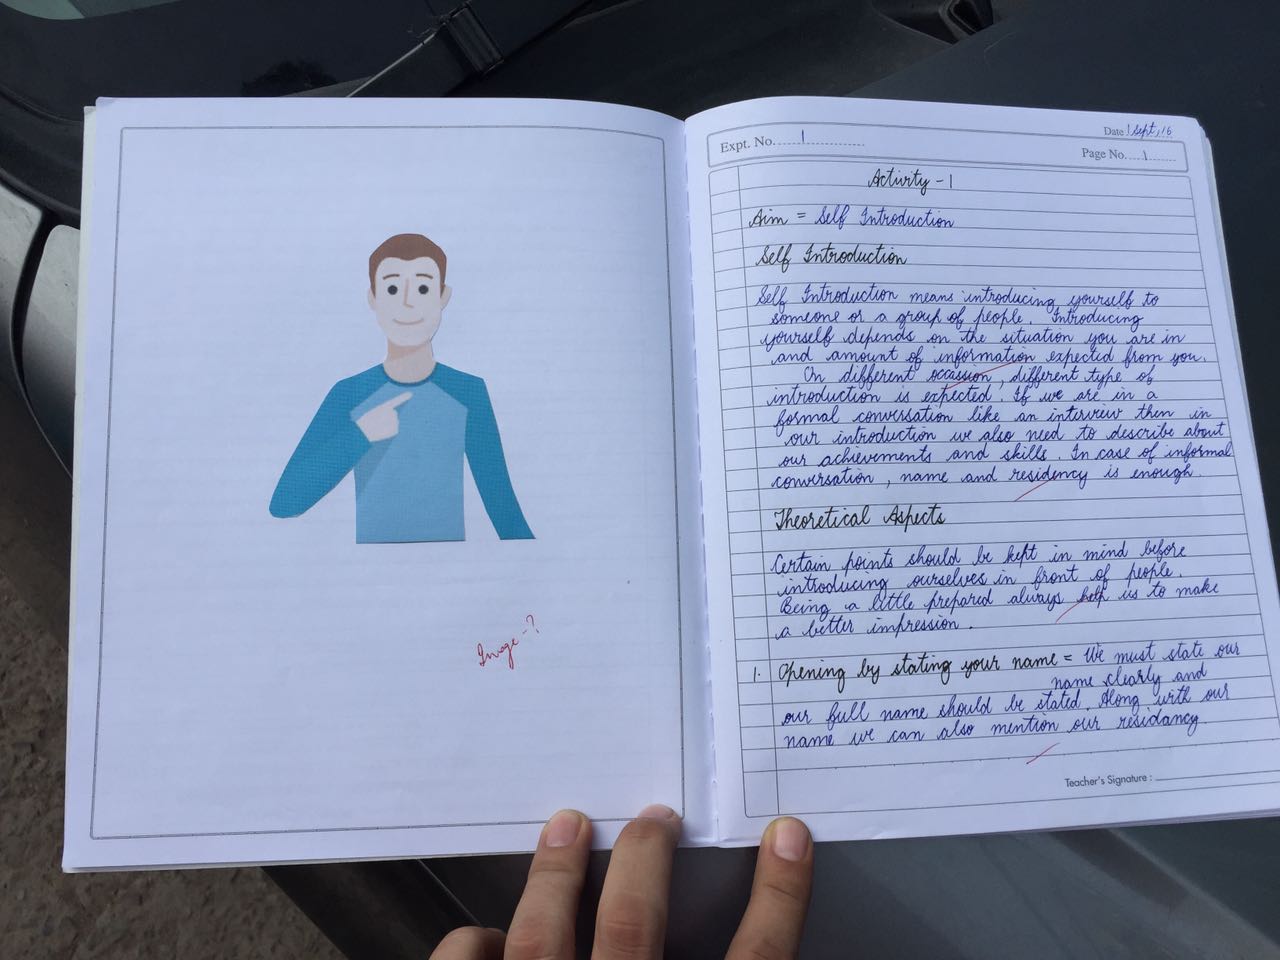 Image-?
Expt. No. 1
Date 1 Sept, 16
Page No. 1
Activity - 1
Aim = Self Introduction
Self Introduction
Self Introduction means introducing yourself to
someone or a group of people. Introducing
yourself depends on the situation you are in
and amount of information expected from you.
On different occassion, different type of
introduction is expected. If we are in a
formal conversation like an interview then in
our introduction we also need to describe about
our achievements and skills. In case of informal
conversation, name and residency is enough.
Theoretical Aspects
Certain points should be kept in mind before
introducing ourselves in front of people.
Being a little prepared always help us to make
a better impression.
1. Opening by stating your name = We must state our
name clearly and
our full name should be stated. Along with our
name we can also mention our residancy.
Teacher's Signature :